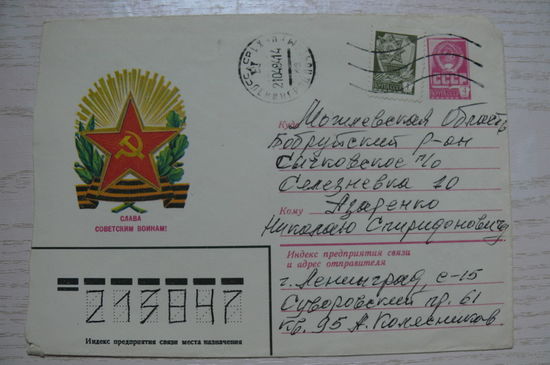 СЛАВА
СОВЕТСКИМ ВОИНАМ!
СССР
Куда Могилевская Область
Бобруйский р-он
Сычковское п/о
Селезневка 10
Кому Азаденко
Николаю Спиридоновичу
Индекс предприятия связи
и адрес отправителя
г. Ленинград, с-15
Суворовский пр. 61
кв. 95 А. Колесников.
213847
Индекс предприятия связи места назначения